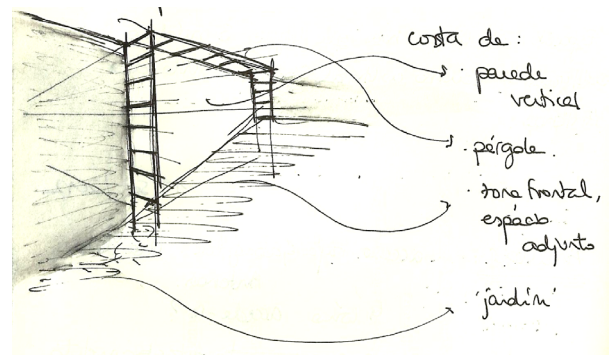 costa de:
· parede
vertical
· pérgola.
· zona frontal,
espácio
adjunto
· 'jardín'